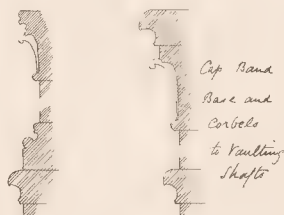 Cap Band
Base and
Corbels
to Vaulting
Shafts